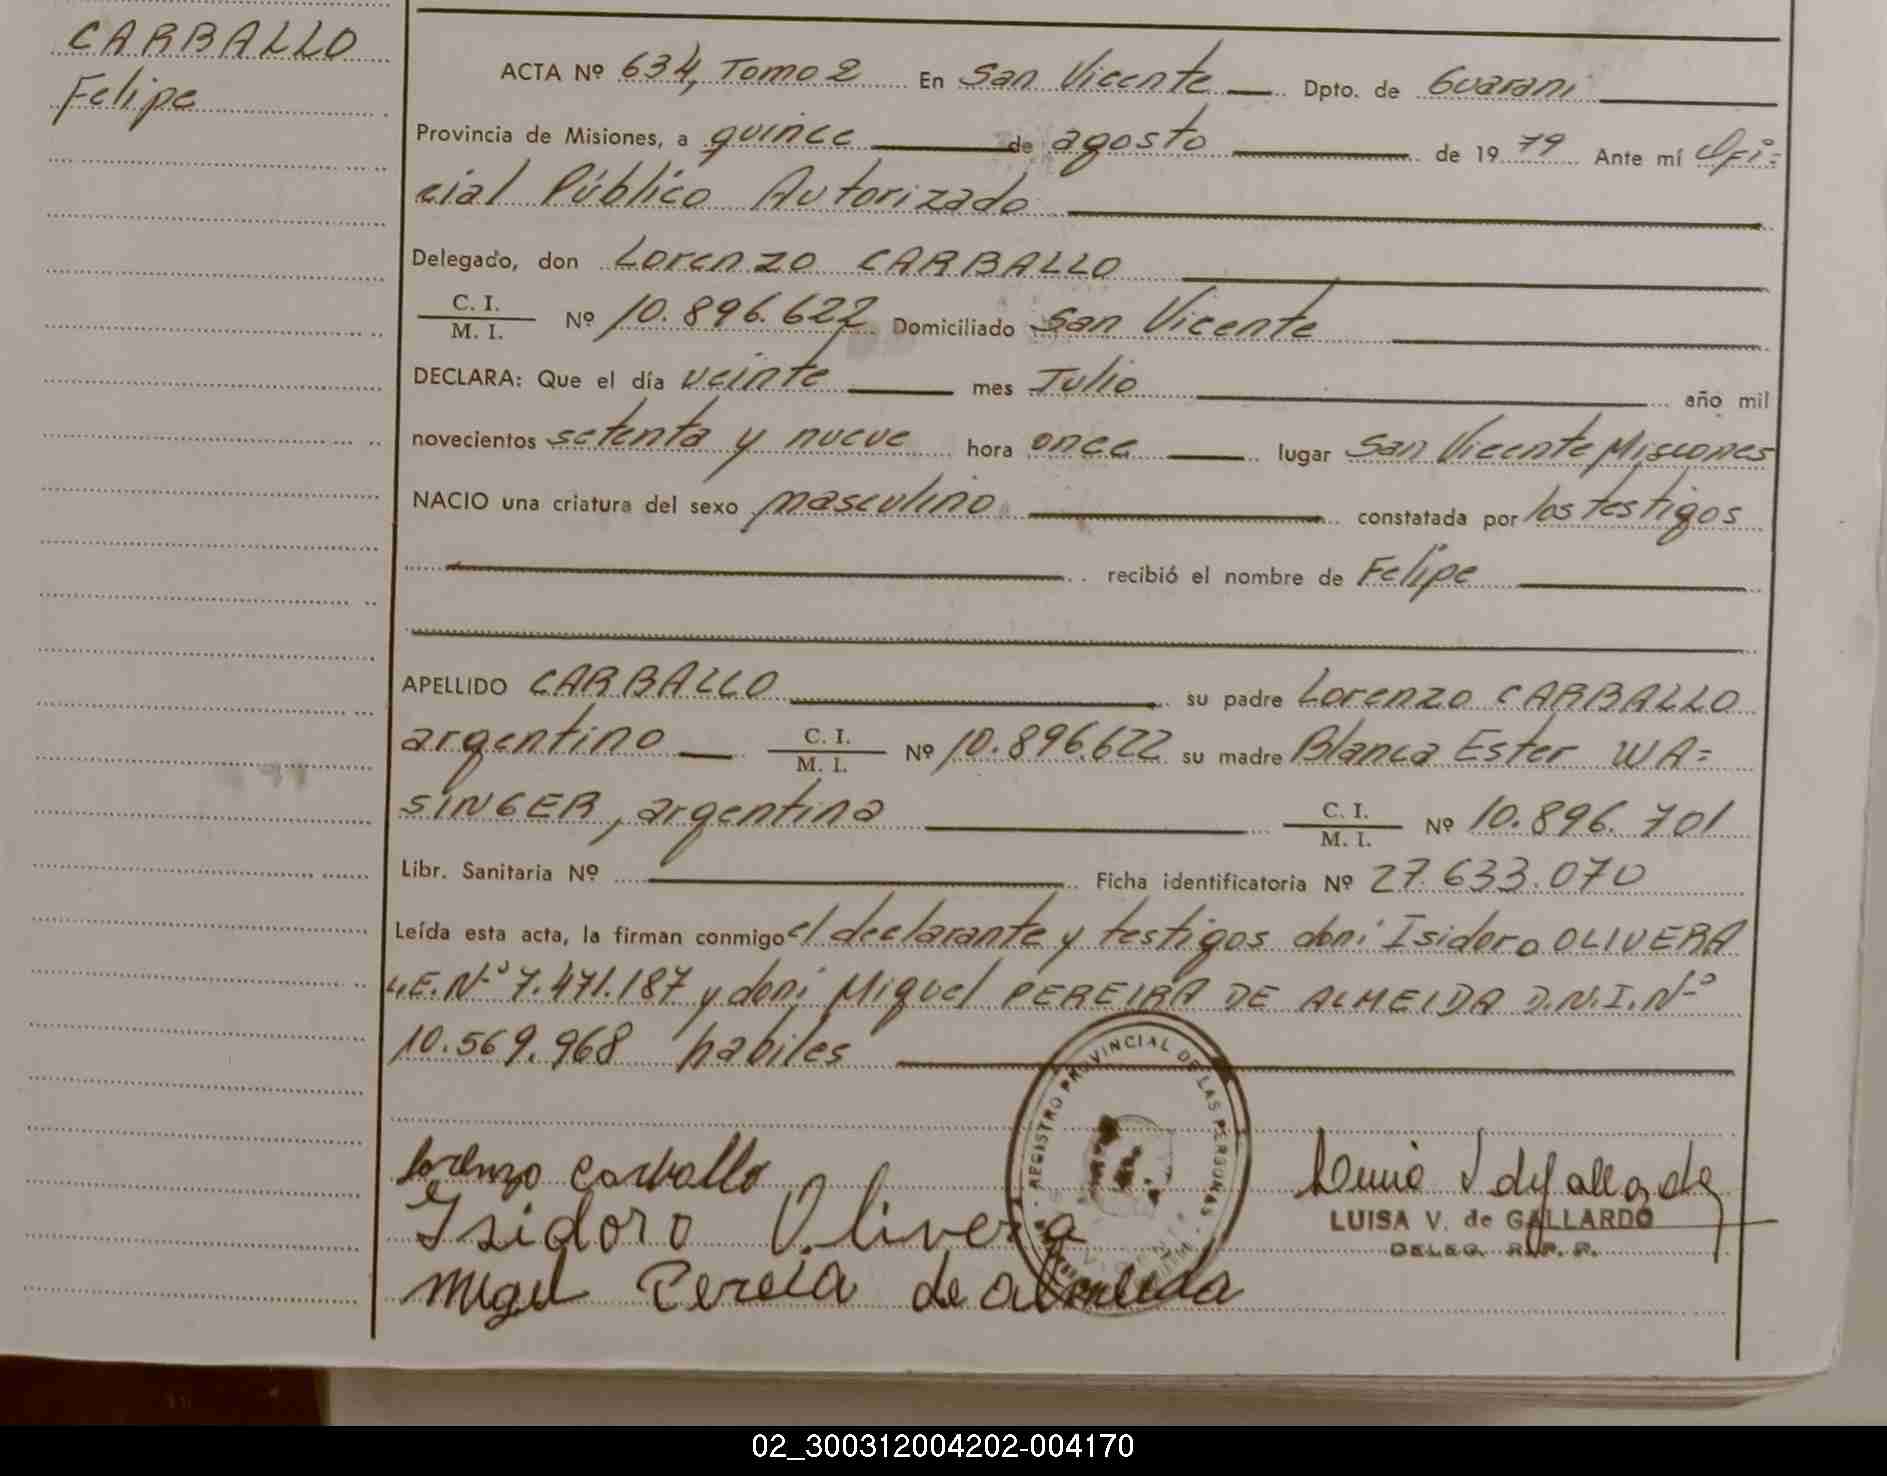 CARBALLO
Felipe
ACTA Nº 634, Tomo 2 En San Vicente Dpto. de Guarani
Provincia de Misiones, a quince de agosto de 1979 Ante mí Ofi=
cial Público Autorizado
Delegado, don Lorenzo CARBALLO
C. I.
M. I. Nº 10.896.622 Domiciliado San Vicente
DECLARA: Que el día veinte mes Julio año mil
novecientos setenta y nueve hora once lugar San Vicente Misiones
NACIO una criatura del sexo masculino constatada por los testigos
recibió el nombre de Felipe
APELLIDO CARBALLO su padre Lorenzo CARBALLO
argentino C. I. M. I. Nº 10.896.622 su madre Blanca Ester WA=
SINGER, argentina C. I. M. I. Nº 10.896.701
Libr. Sanitaria Nº Ficha identificatoria Nº 27.633.070
Leída esta acta, la firman conmigo el declarante y testigos don: Isidoro OLIVERA
L.E. Nº 7.471.187 y don: Miguel PEREIRA DE ALMEIDA D.N.I. Nº
10.569.968 habiles
REGISTRO PROVINCIAL DE LAS PERSONAS
Lorenzo Carballo
Isidoro Olivera
Migel Pereia de almeida
LUISA V. de GALLARDO
DELEG. R. P. P.
02_300312004202-004170